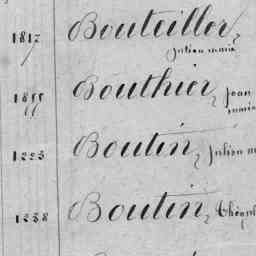 1817 Bouteiller,
Julien marie
1855 Bouthier, Jean
marie
1223 Boutin, Julien m
1238 Boutin, Théop